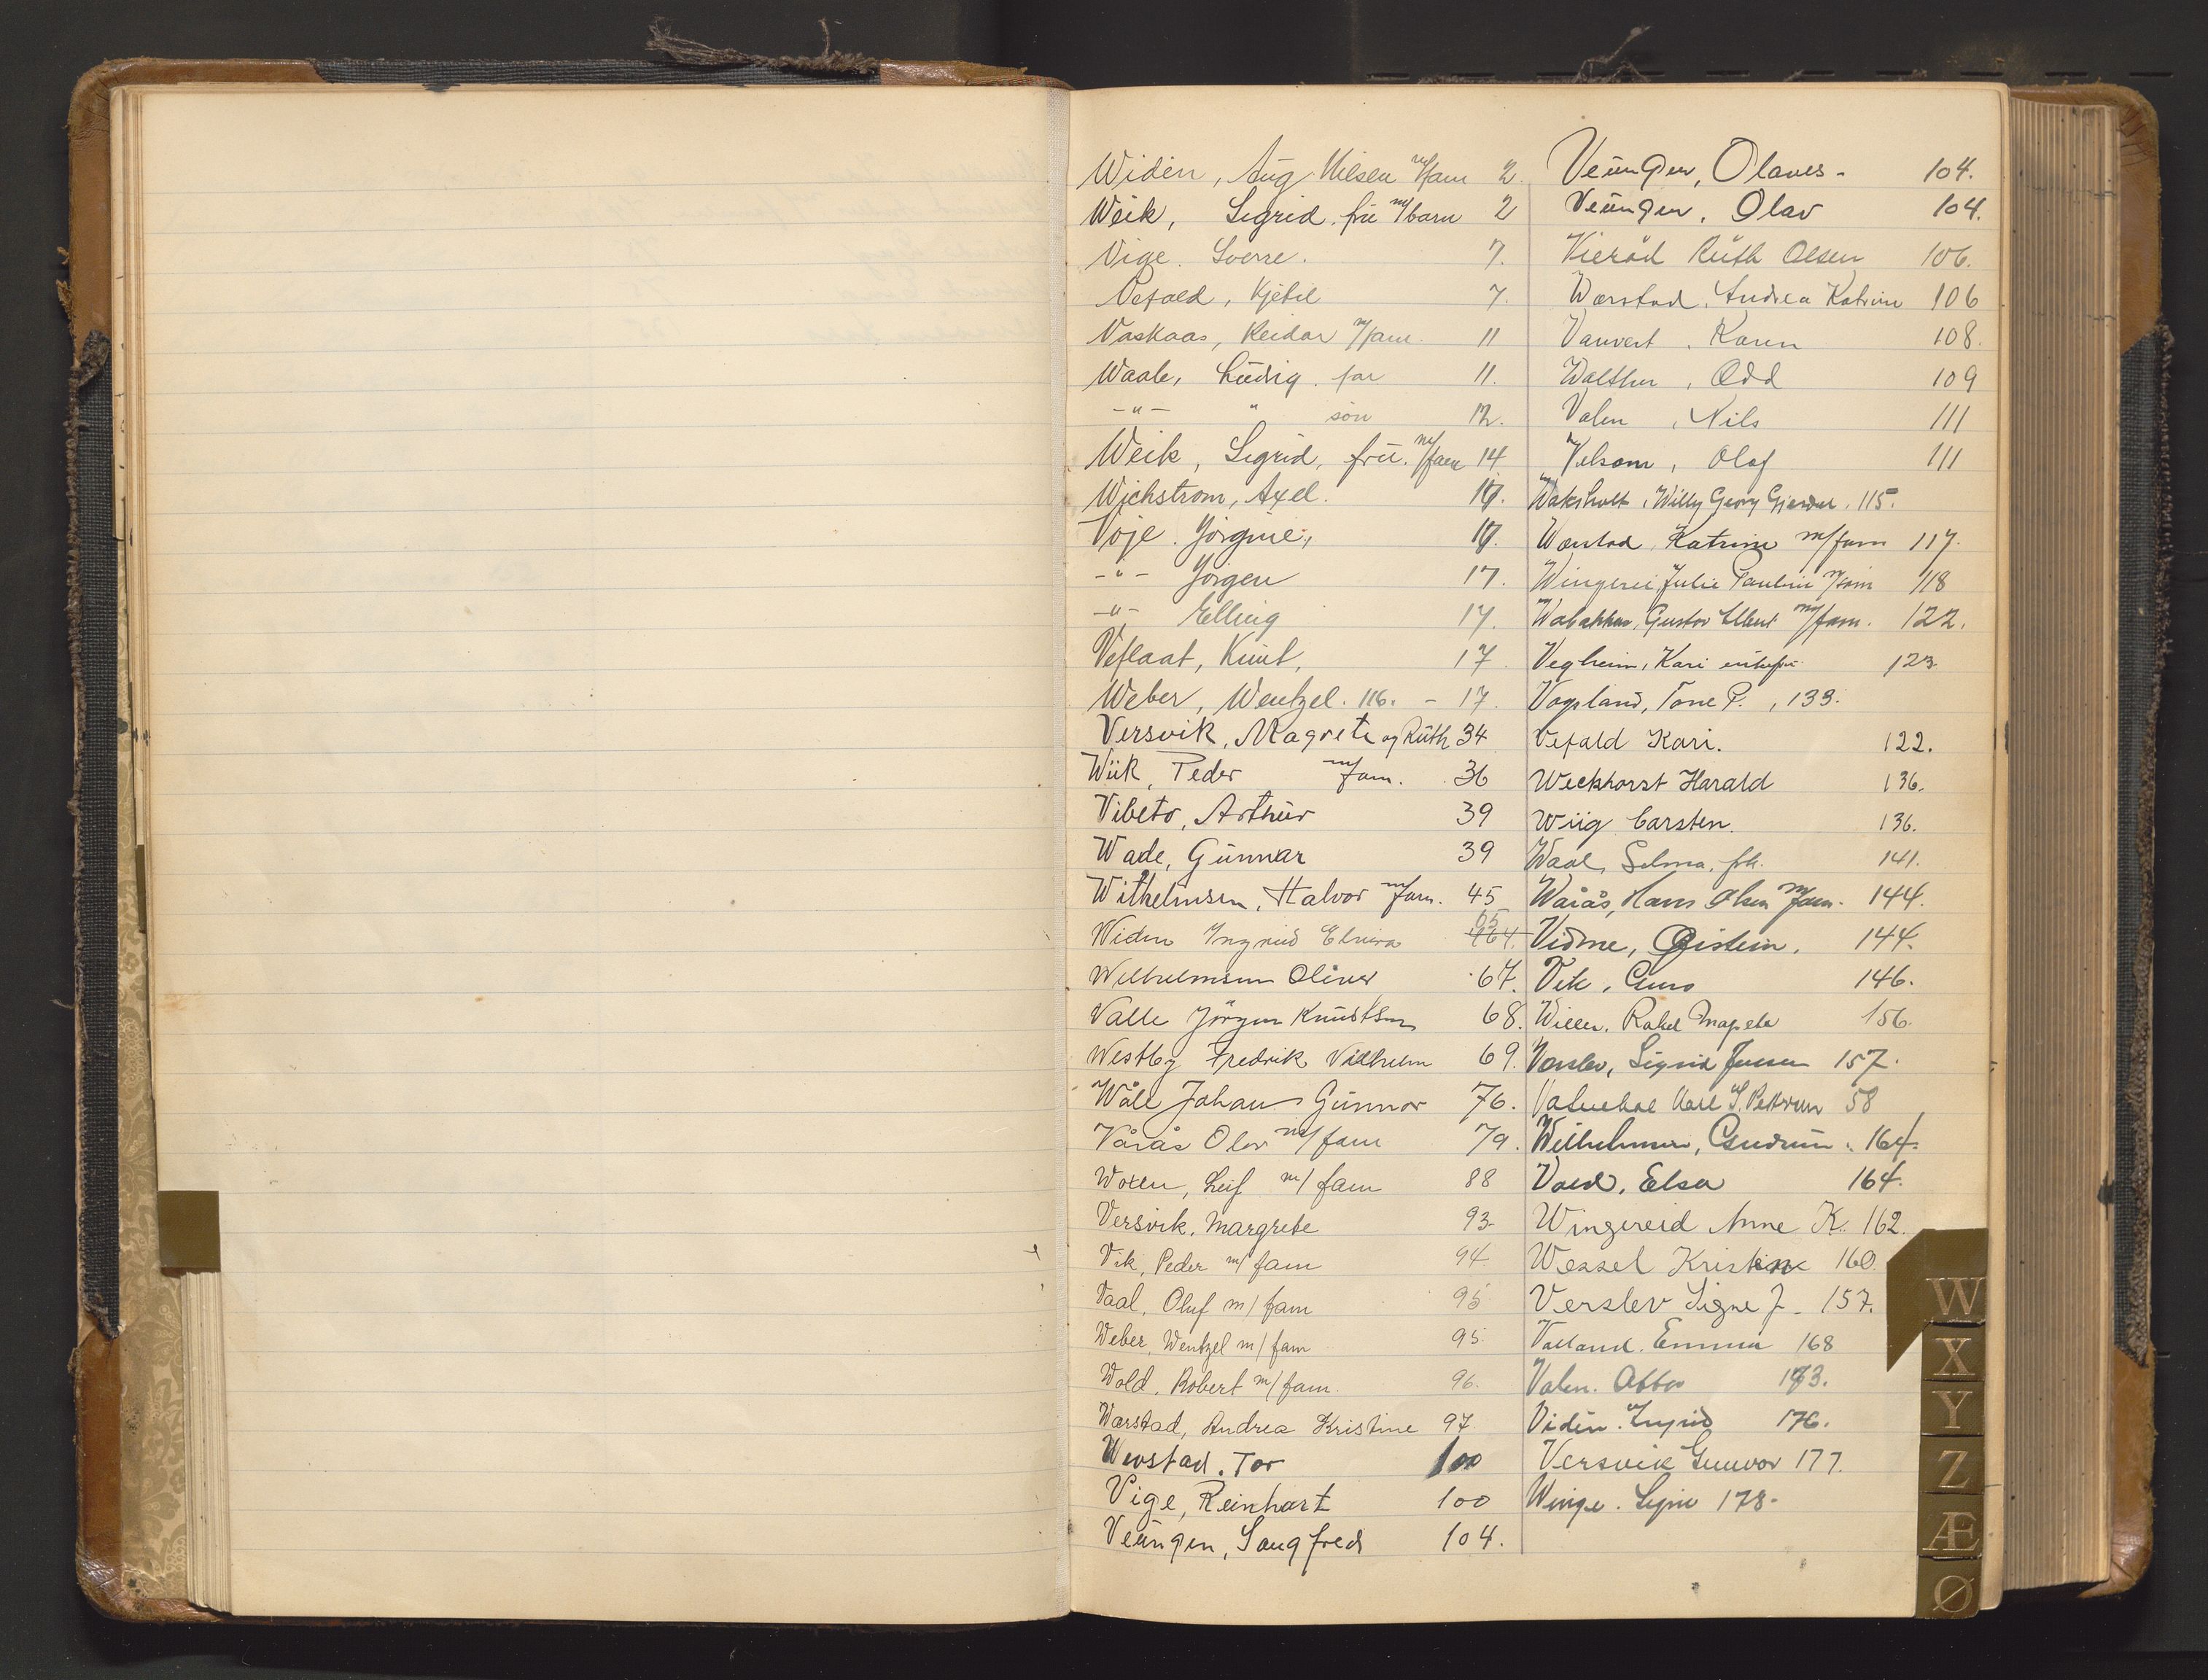 Widen, Aug Nilsen m/fam 2.
Weik, Sigrid frü m/barn 2
Vige. Sverre. 7.
Vefald, Kjetil 7.
Vaskaas, Reidar m/fam. 11
Waale, Ludvig. far 11.
-"- " sön 12.
Weik, Sigrid, frü. m/fam 14
Wichstrøm, Axel. 17.
Voje. Jörgine, 17.
-"- Jörgen 17.
-"- Elling 17.
Veflaat, Knüt, 17.
Weber, Wentzel. 116. - 17.
Versvik, Magrete og Rüth 34
Wiik, Peder m/fam. 36
Vibeto, Arthür 39
Wade, Günnar 39
Wilhelmsen, Halvor m/fam. 45
Widen Ingrid Elvira 65
Wilhelmsen Oliver 67.
Valle Jörgen Knüdtsen 68.
Westby Fredrik Vilhelm 69.
Wåle Johan Günnar 76.
Vårås Olav m/fam 79.
Woxen, Leif m/fam 88
Versvik, Margrete 93
Vik, Peder m/fam 94
Vaal, Oluf m/fam 95
Weber, Wentzel m/fam 95
Wold, Robert m/fam. 96.
Warstad, Andrea Kristine 97.
Werstad. Tor 100
Vige, Reinhart 100
Veüngen, Saugfred 104.
Veüngen, Olaves - 104.
Veüngen, Olav 104.
Vieråd Rüth Olsen 106.
Warstad, Andrea Katrine 106
Vanvert, Karen 108.
Walther, Odd 109
Valen, Nils 111
Velsom, Olaf 111
Waksholt, Willy Georg 115.
Warstad, Katrine m/fam 117.
Wingerei Julie Pauline m/sön 118
Gustav m/fam. 122.
Vegheim, Kari enkefru 123
Vogsland, Tone P., 133.
Vefald Kari. 122.
Weckhorst Harald 136.
Wiig Carsten. 136.
Waal, Selma, frk. 141.
Wårås, Hans Olsen m/fam. 144.
Vidme, Øistein. 144.
Vik, Guro 146.
Willen. Rakel 156.
Verslev, Sigrid Jensen 157.
Karl S. Pettersen 58
Wilhelmsen, Gudrün. 164.
Vold, Elsa 164.
Wingereid Anne K. 162.
Wessel Kristine 160.
Verslev Signe J. 157.
Valland. Emma 168
Valen. 173.
Viden. Ingrid 176.
Versvik Gunvor 177.
Winge. Signe 178.
W
X
Y
Z
Æ
Ø